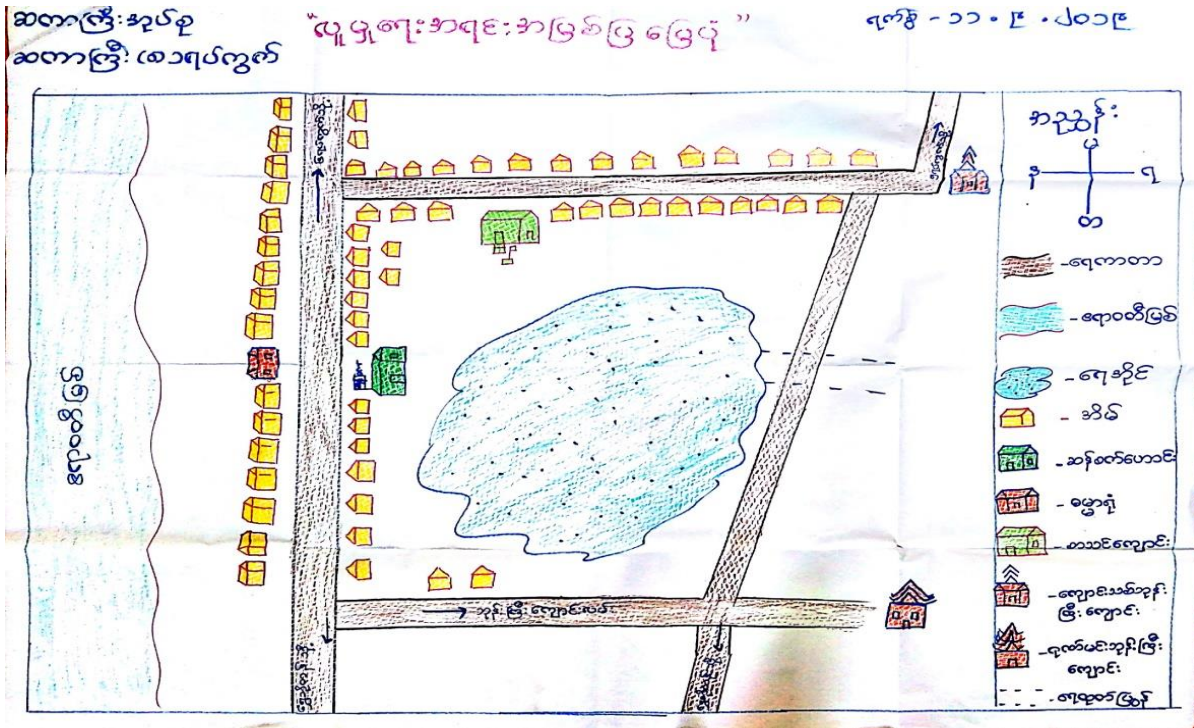 ဆကာကြီးအုပ်စု
ဆကာကြီး (စ)ရပ်ကွက်
"လူမှုရေးအရင်းအမြစ်ပြမြေပုံ"
ရက်စွဲ - ၁၁.၉.၂၀၁၉
အညွှန်း
မ
န
ရ
တ
ဧရာဝတီမြစ်
ဘုန်းကြီးကျောင်းလမ်း
-ရေကာတာ
-ဧရာဝတီမြစ်
-ရေအိုင်
- အိမ်
-ဆန်စက်ဟောင်း
-ဓမ္မာရုံ
-စာသင်ကျောင်း
-ကျောင်းသစ်ဘုန်း
ကြီးကျောင်း
-ဂုဏ်မင်းဘုန်းကြီး
ကျောင်း
-ရေထုတ်ပြွန်